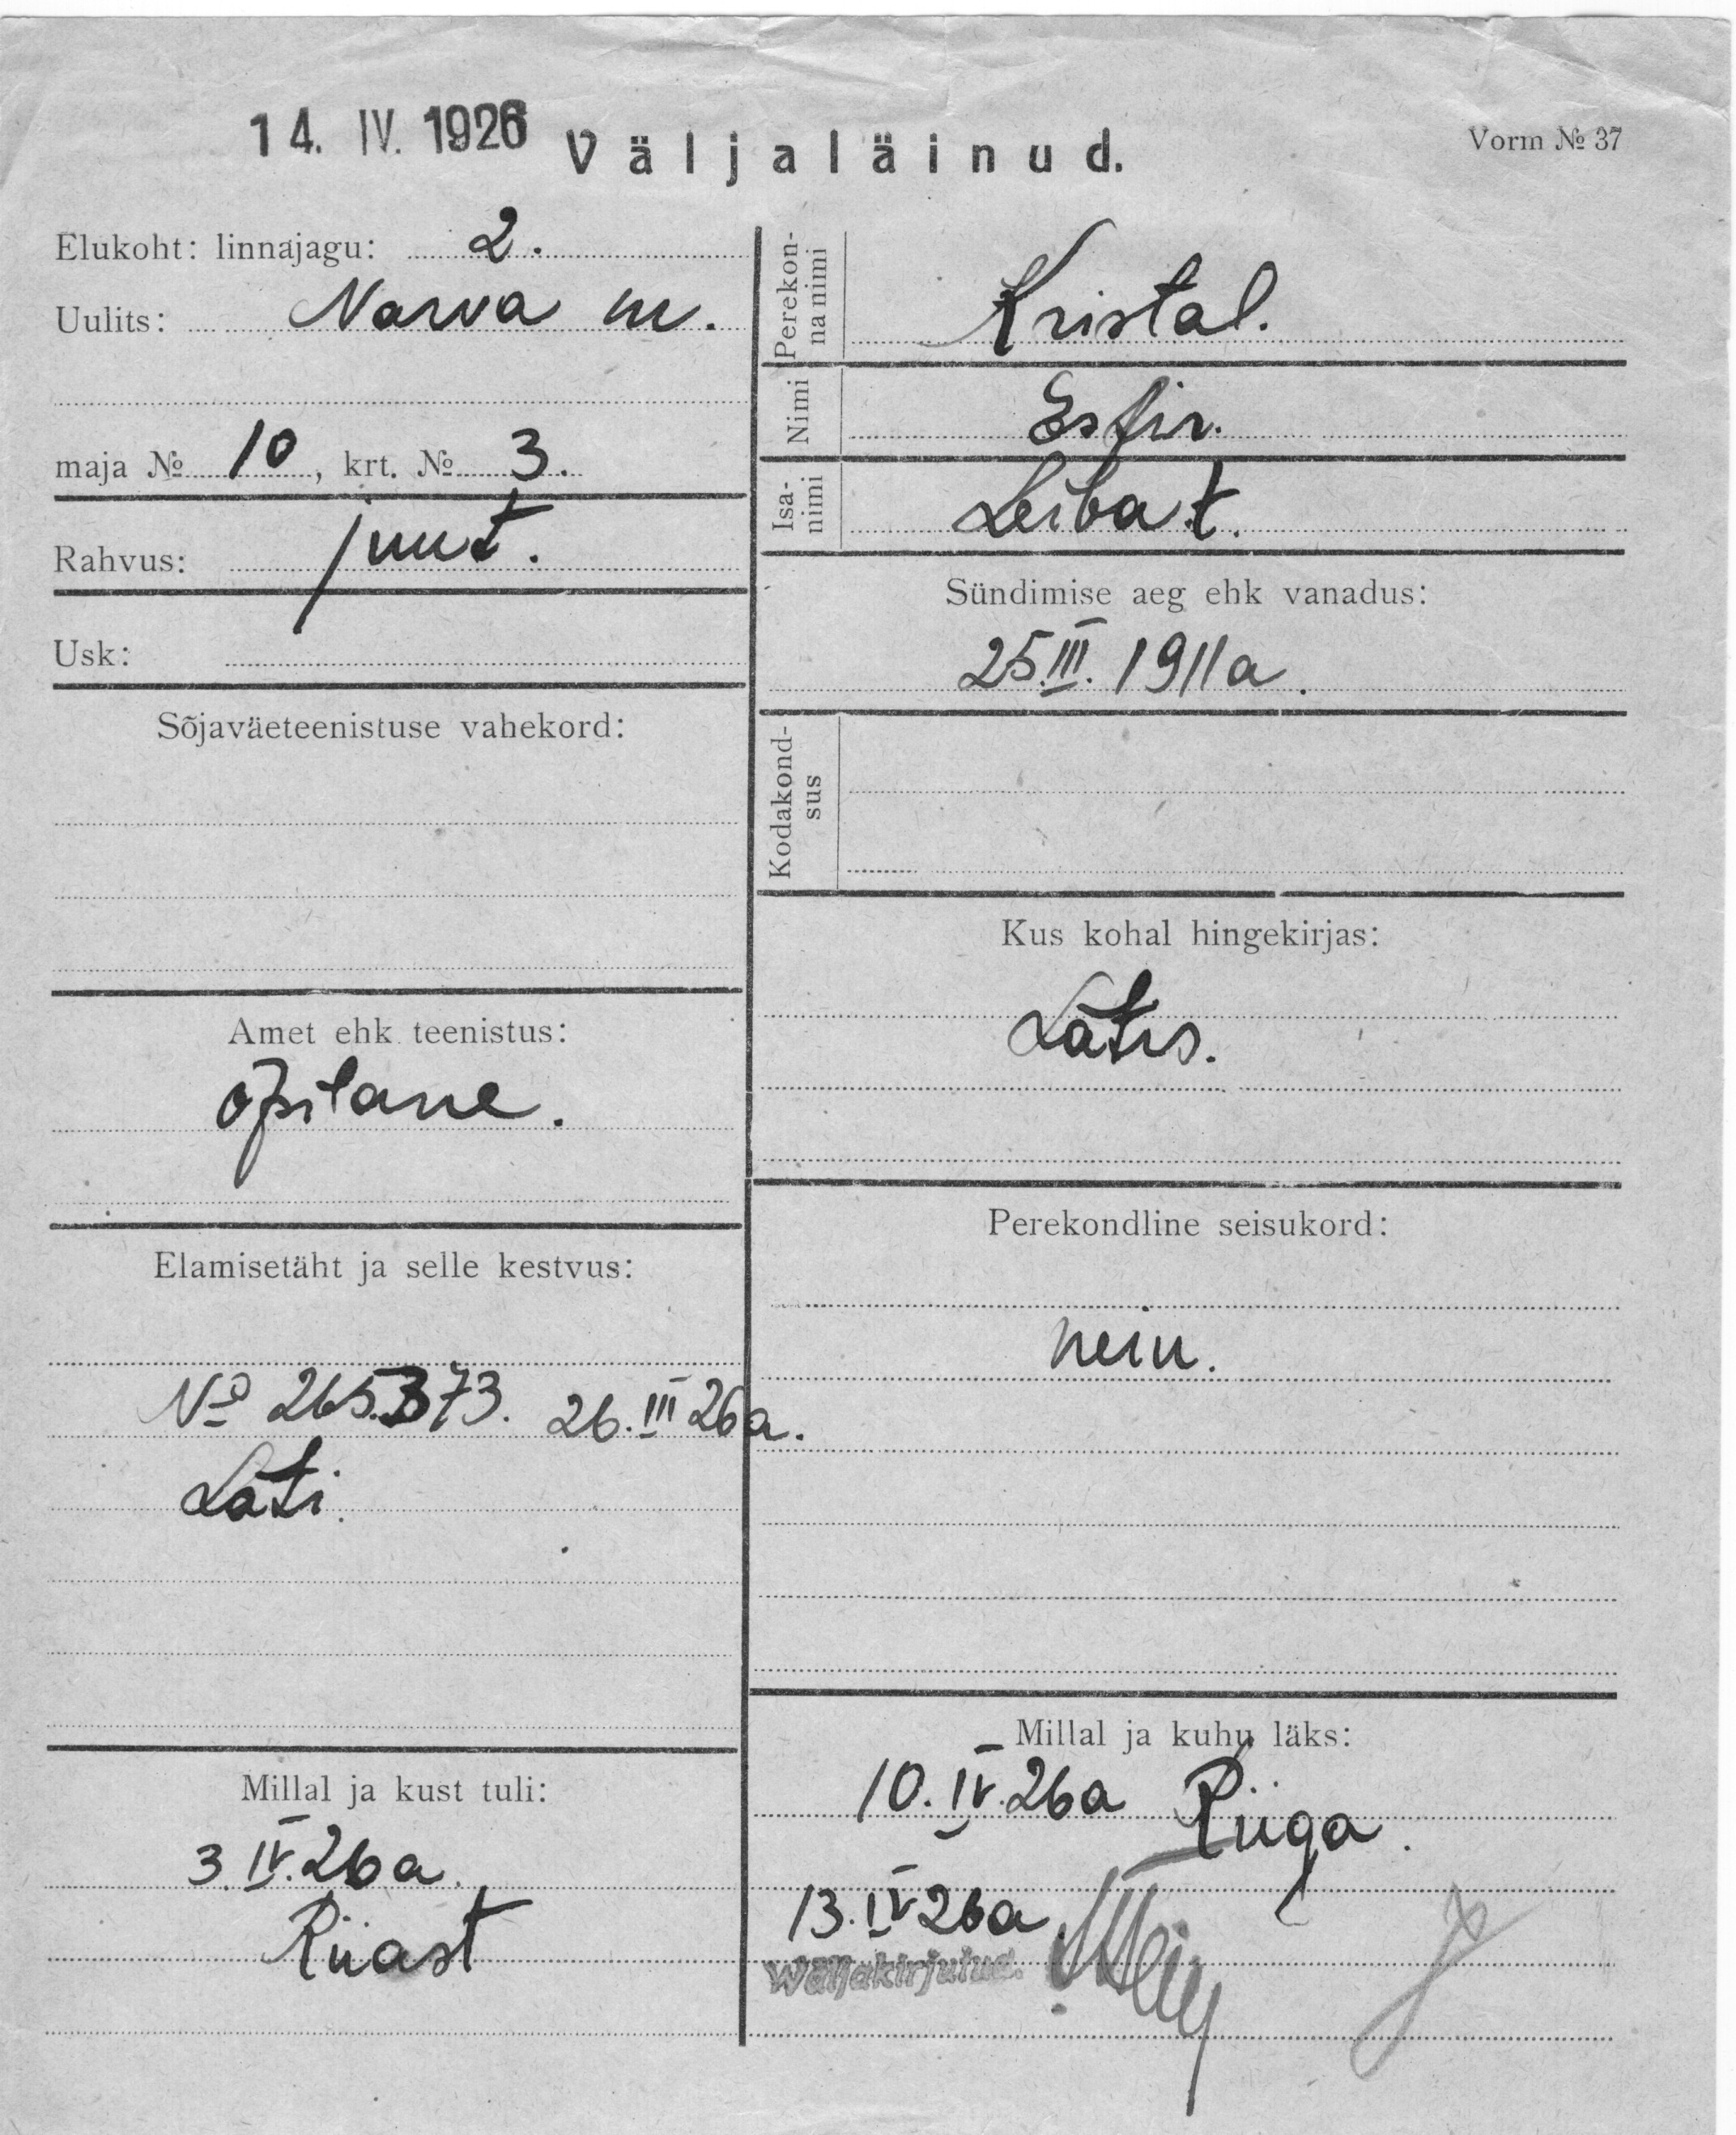 14. IV. 1926 Väljaläinud. Vorm № 37
Elukoht: linnajagu: 2.
Uulits: Narva m.
maja № 10, krt. № 3.
Rahvus: juut.
Usk:
Sõjaväeteenistuse vahekord:
Amet ehk teenistus:
õpilane.
Elamisetäht ja selle kestvus:
№ 265373. 26. III 26a.
Läti.
Millal ja kust tuli:
3. IV. 26a.
Riiast
Perekonna nimi
Kristal.
Nimi
Esfir.
Isa-nimi
Leiba t.
Sündimise aeg ehk vanadus:
25. III. 1911a.
Kodakond-
sus
Kus kohal hingekirjas:
Lätis.
Perekondline seisukord:
neiu.
Millal ja kuhu läks:
10. IV. 26a Riiga.
13. IV 26a
Wäljakirjutud.